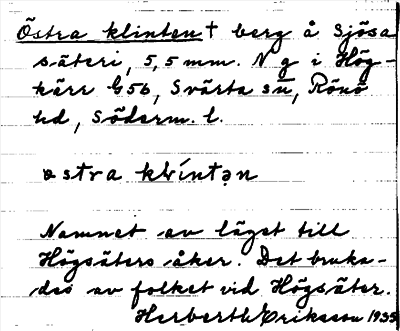 Östra klinten† berg å Sjösa
säteri, 5,5 mm. N g i Hög-
kärr G56, Svärta sn, Rönö
hd, Söderm. l.
östra klintən
Namnet av läget till
Högsäters åker. Det bruka-
des av folket vid Högsäter.
Herbert Eriksson 1935